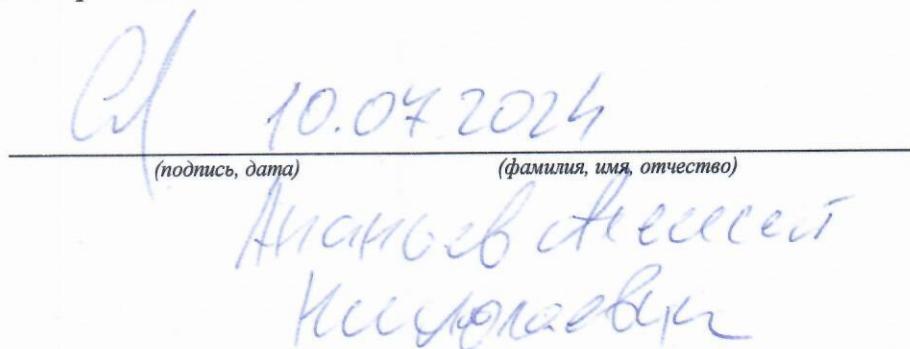 10.07.2024
(подпись, дата) (фамилия, имя, отчество)
Ананьев Алексей
Николаевич